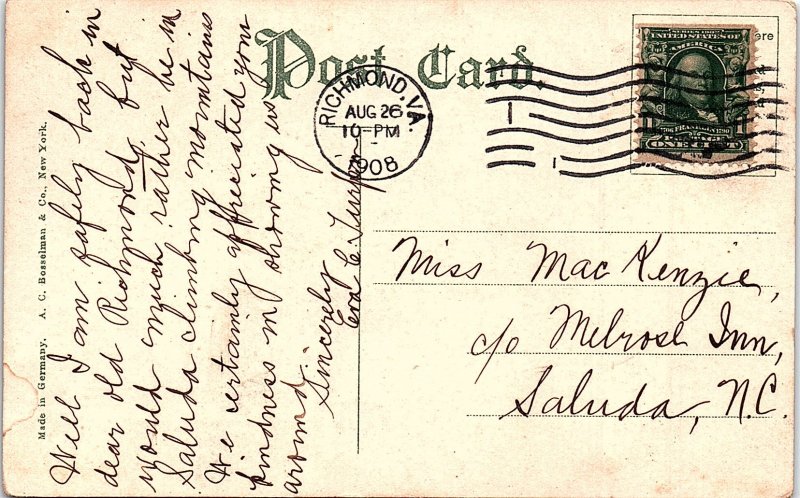 Post Card.
RICHMOND, VA.
AUG 26
10-PM
1908
SERIES 1902
UNITED STATES OF
AMERICA
FRANKLIN
ONE CENT
Well I am safely back in
dear old Richmond, but
would much rather be in
Saluda climbing mountains
We certainly appreciated your
kindness in showing us
around.
Sincerely
Eva C. Turpin
Miss MacKenzie,
c/o Melrose Inn,
Saluda, N.C.
Made in Germany. A. C. Bosselman & Co., New York.